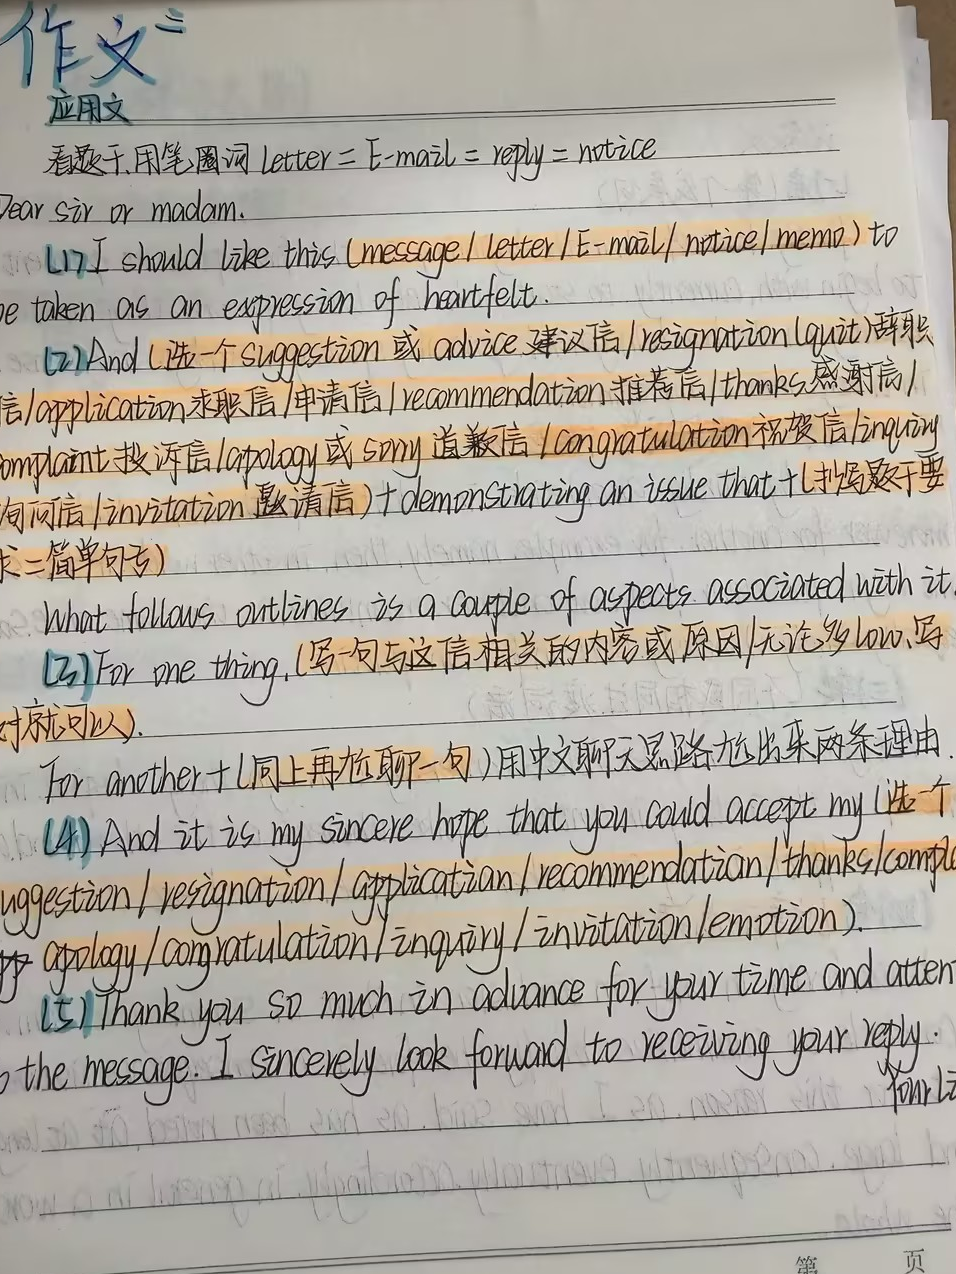 作文二
应用文
看题干,用笔圈词 Letter = E-mail = reply = notice
Dear sir or madam.
(1) I should like this (message / letter / E-mail / notice / memo) to
be taken as an expression of heartfelt.
(2) And (选一个 suggestion 或 advice 建议信 / resignation (quit) 辞职
信 / application 求职信 / 申请信 / recommendation 推荐信 / thanks 感谢信 /
complaint 投诉信 / apology 或 sorry 道歉信 / congratulation 祝贺信 / inquiry
询问信 / invitation 邀请信) + demonstrating an issue that + (抄写题干要
求=简单句子)
What follows outlines is a couple of aspects associated with it.
(3) For one thing, (写一句与这信相关的内容或原因 / 无论多low、写
对就可以).
For another + (同上再尬聊一句) 用中文聊天思路尬出来两条理由.
(4) And it is my sincere hope that you could accept my (选一个
suggestion / resignation / application / recommendation / thanks / compla
apology / congratulation / inquiry / invitation / emotion).
(5) Thank you so much in advance for your time and atten
the message. I sincerely look forward to receiving your reply.
Your Li
第 页